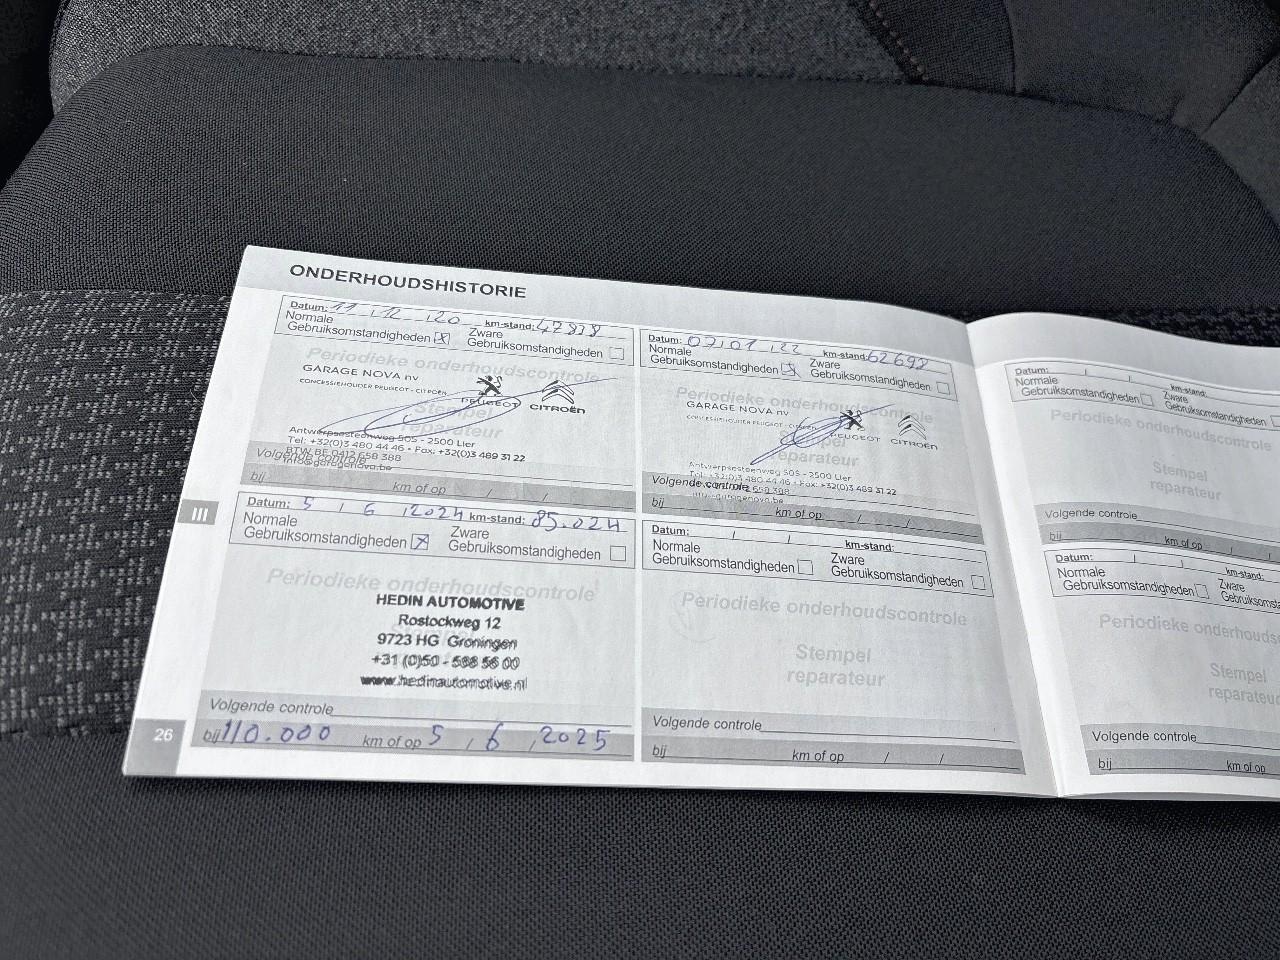 ONDERHOUDSHISTORIE
Datum: 11 / 12 / 20 km-stand: 47838
Normale Gebruiksomstandigheden X Zware Gebruiksomstandigheden
Periodieke onderhoudscontrole
GARAGE NOVA nv
CONCESSIEHOUDER PEUGEOT - CITROËN
PEUGEOT CITROËN
Stempel
reparateur
Antwerpsesteenweg 505 - 2500 Lier
Tel: +32(0)3 480 44 46 • Fax: +32(0)3 489 31 22
BTW BE 0412 658 388
info@garagenova.be
Volgende controle
bij km of op / /
Datum: 07 / 01 / 22 km-stand: 62692
Normale Gebruiksomstandigheden X Zware Gebruiksomstandigheden
Periodieke onderhoudscontrole
GARAGE NOVA nv
CONCESSIEHOUDER PEUGEOT - CITROËN
PEUGEOT CITROËN
Stempel
reparateur
Antwerpsesteenweg 505 - 2500 Lier
Tel: +32(0)3 480 44 46 • Fax: +32(0)3 489 31 22
Volgende controle
bij km of op / /
III
Datum: 5 / 6 / 2024 km-stand: 85.024
Normale Gebruiksomstandigheden X Zware Gebruiksomstandigheden
Periodieke onderhoudscontrole
HEDIN AUTOMOTIVE
Rostockweg 12
9723 HG Groningen
+31 (0)50 - 588 56 00
www.hedinautomotive.nl
Volgende controle
bij 110.000 km of op 5 / 6 / 2025
Datum: / / km-stand:
Normale Gebruiksomstandigheden Zware Gebruiksomstandigheden
Periodieke onderhoudscontrole
Stempel
reparateur
Volgende controle
bij km of op / /
26
Datum: / / km-stand:
Normale Gebruiksomstandigheden Zware Gebruiksomstandigheden
Periodieke onderhoudscontrole
Stempel
reparateur
Volgende controle
bij km of op / /
Datum: / / km-stand:
Normale Gebruiksomstandigheden Zware
Periodieke
Stempel
Volgende controle
bij km of op